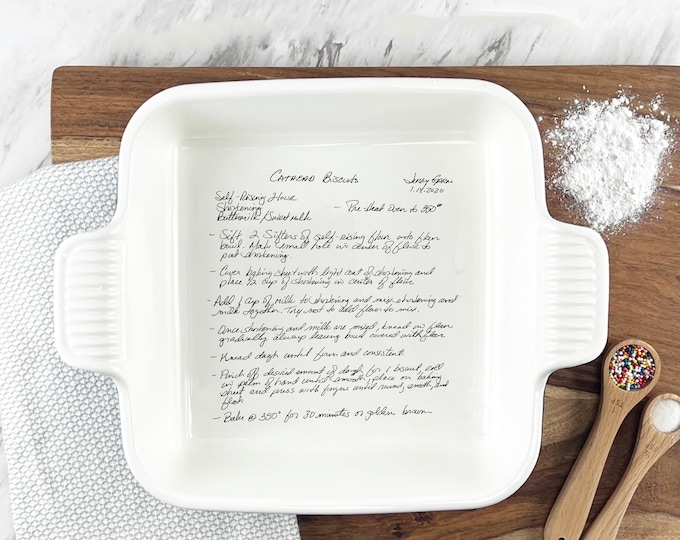 Cathead Biscuits
1.14.2020
Self-Rising Flour
Shortening
Buttermilk/Sweetmilk
- Pre heat oven to 350°
- Sift 2 Sifters of self-rising flour into flour
bowl. Make small hole in center of flour to
put shortening
- Cover baking sheet with light coat of shortening and
place 1/2 cup of shortening in center of flour
- Add 1 cup of milk to shortening and mix shortening and
milk together. Try not to add flour to mix.
- Once shortening and milk are mixed, knead in flour
gradually always keeping bowl covered with flour
- Knead dough until firm and consistent
- Pinch off desired amount of dough for 1 biscuit, roll
in palm of hand until smooth, place on baking
sheet and press with fingers until round, smooth, and
- Bake @ 350° for 30 minutes or golden brown